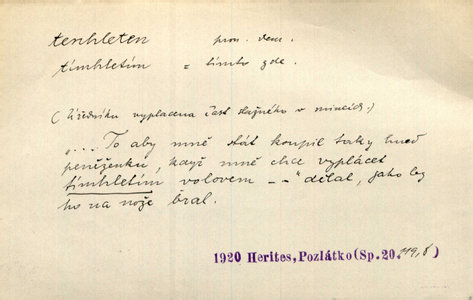 tenhleten pron. dem.
tímhletím = tímto zde.
(Úředníku vyplacena část služného v mincích.)
„... To aby mně stát koupil taky hned
peněženku, když mně chce vyplácet
tímhletím volovem –– “ dělal, jako by
ho na nože bral.
1920 Herites, Pozlátko (Sp. 20. 119, 8)